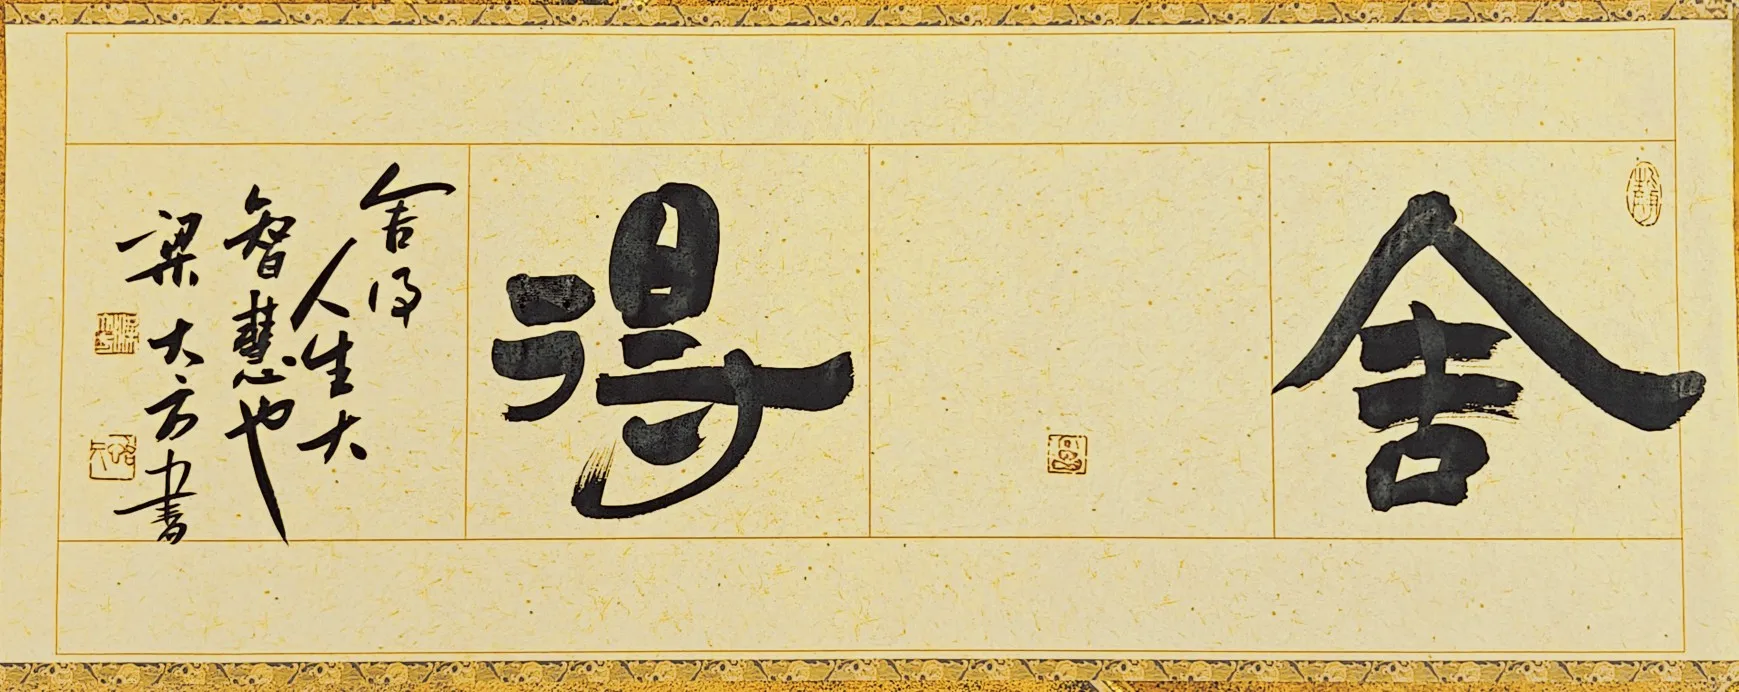 舍得
舍得
人生大
智慧也
梁大方書